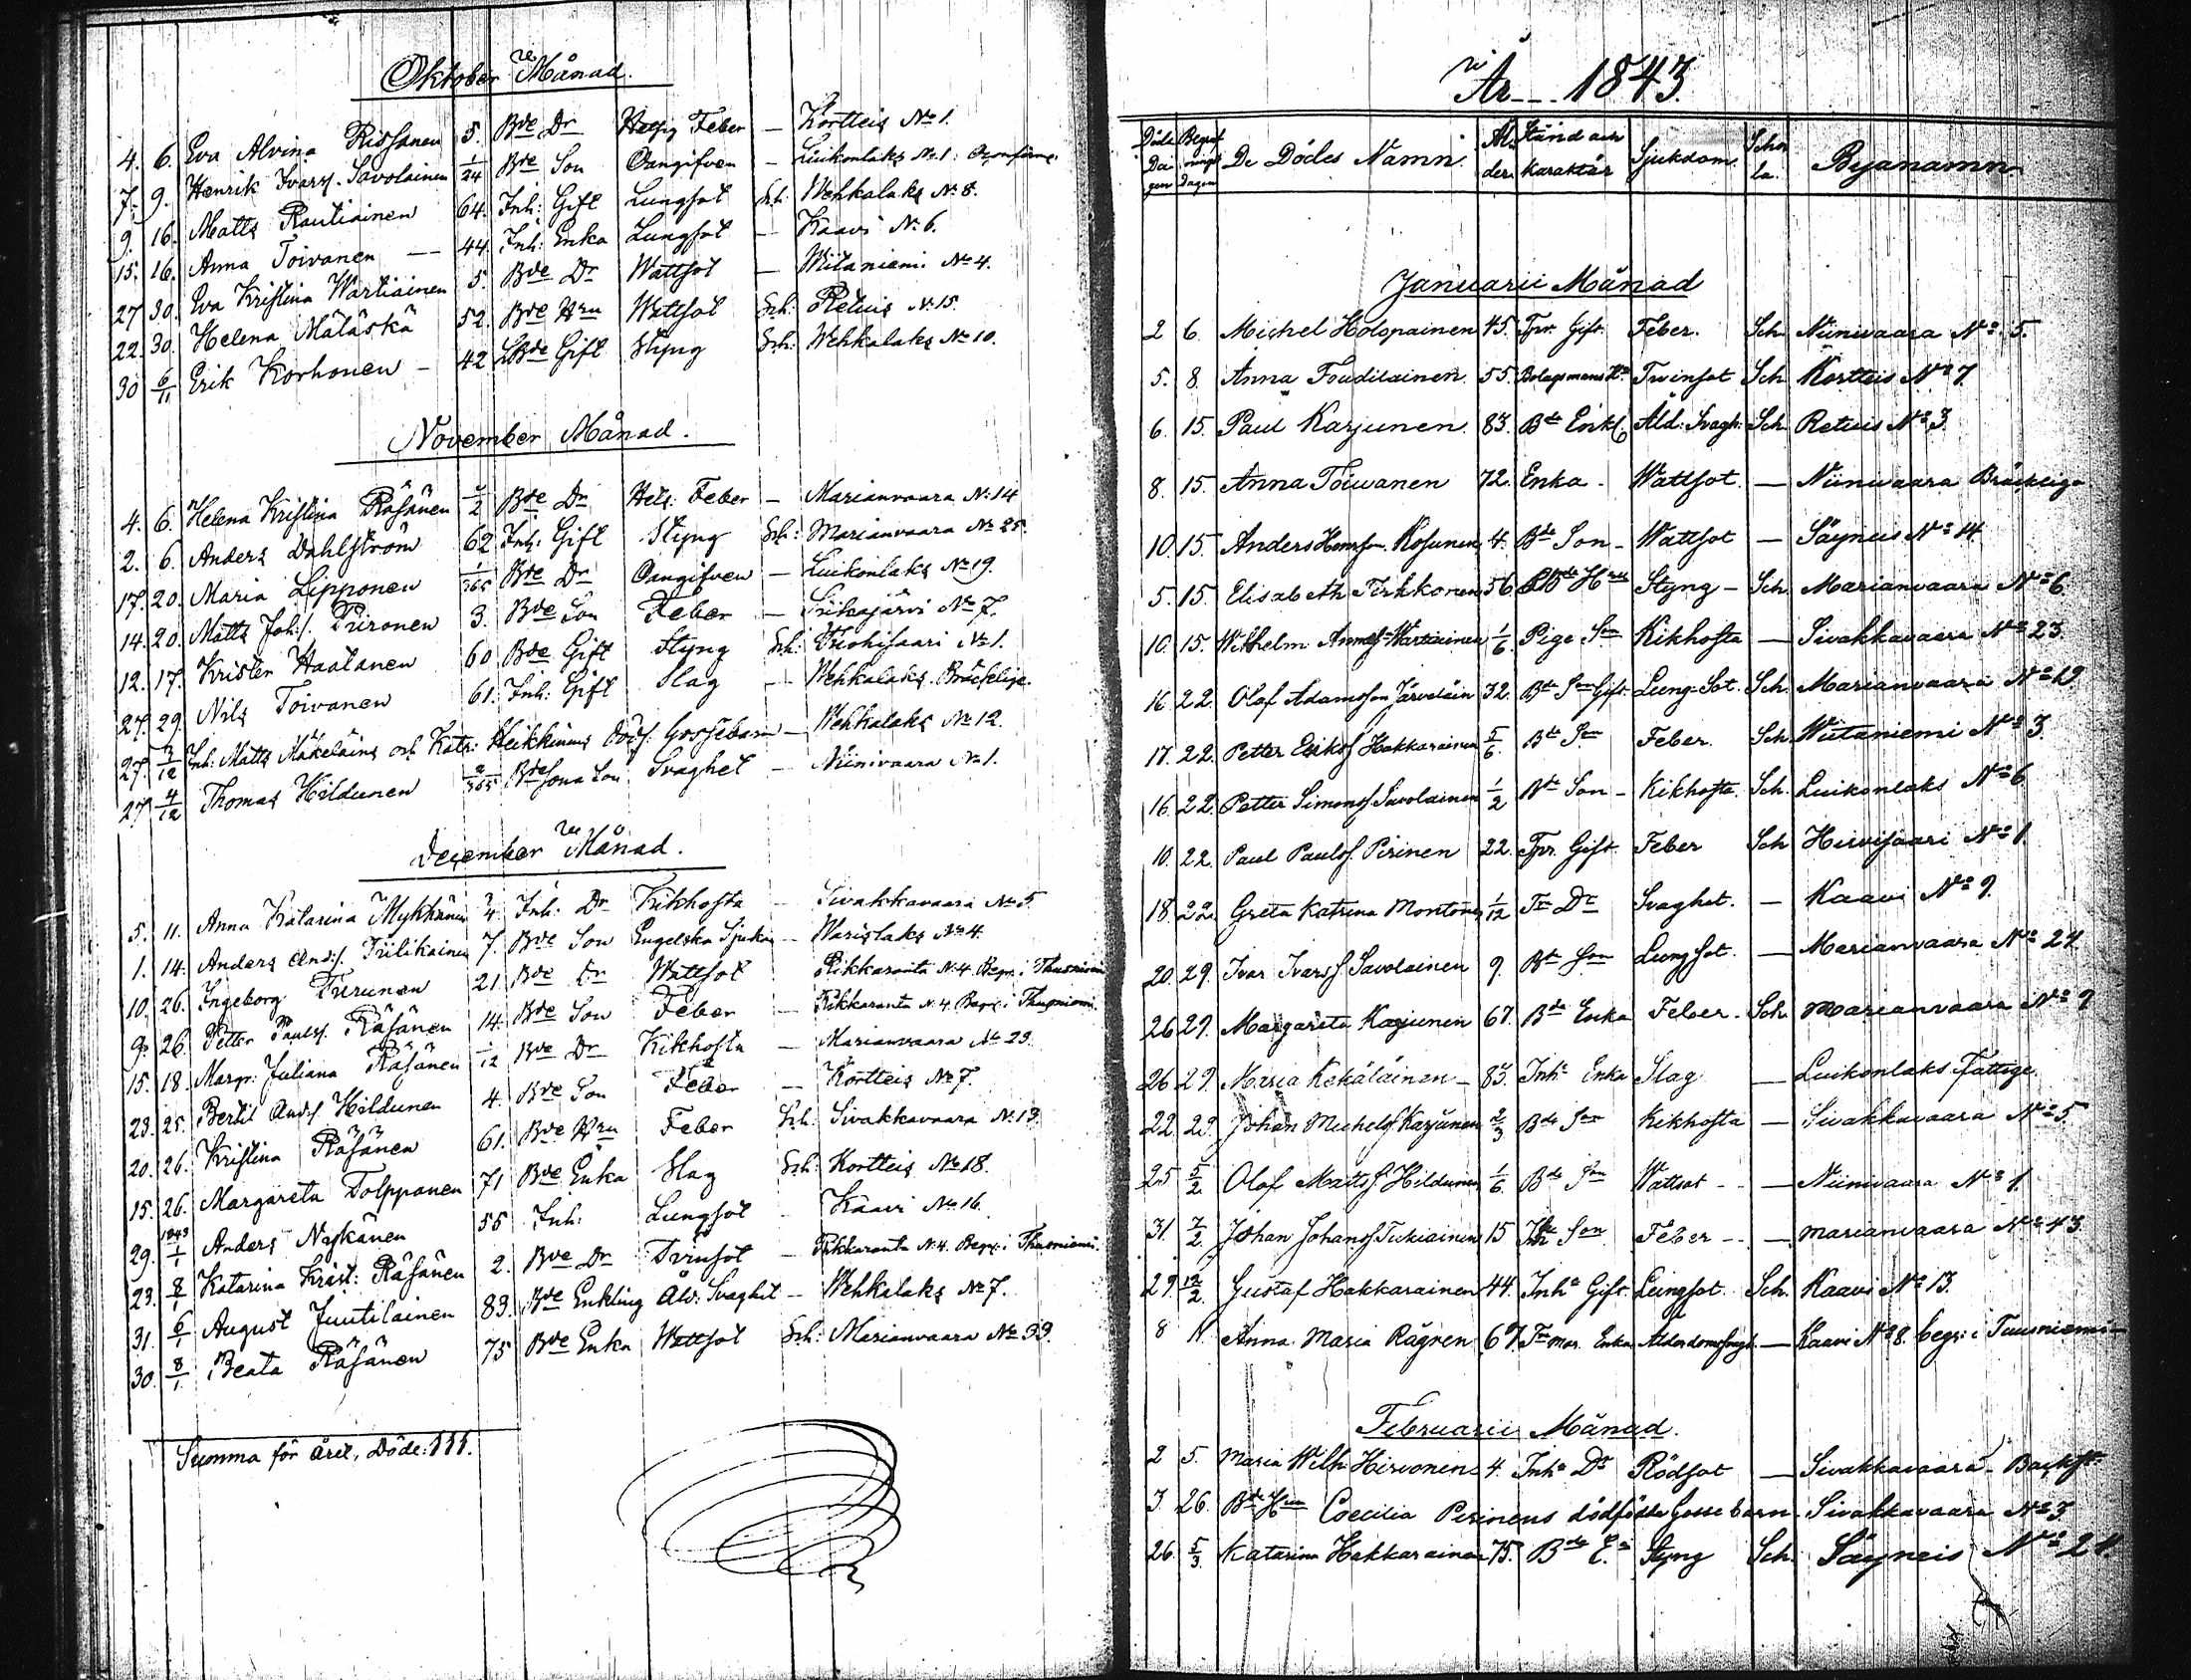 Oktober Månad.
4. 6. Eva Alvina Rissanen 5. Bde Dr Hetsig Feber — Kortteis No 1.
7. 9. Henrik Ivarss. Savolainen 1/24 Bde Son Oangifven — Luikonlaks No 1.
9. 16. Matts Rautiainen 64. Inh: Gift Lungsot Sch: Wehkalaks No 8.
15. 16. Anna Toivanen — 44. Inh: Enka Lungsot — Kaavi No 6.
27 30. Eva Kristina Wartiainen 5. Bde Dr Wattsot — Witaniemi No 4.
22. 30. Helena Mälaskä 52. Bde Hru Wattsot Sch: Retuis No 15.
30 6/11 Erik Korhonen — 42 Bde Gift Styng Sch: Wehkalaks No 10.
November Månad.
4. 6. Helena Kristina Räsänen 1/2 Bde Dr Hets. Feber — Marianvaara No 14
2. 6. Anders Dahlström 62 Inh: Gift Styng Sch: Marianvaara No 25.
17. 20. Maria Lipponen 1/365 Bde Dr Oangifven — Luikonlaks No 19.
14. 20. Matts Joh:s. Piironen 3. Bde Son Feber — Siikajärvi No 7.
12. 17. Krister Haatanen 60 Bde Gift Styng Sch: No 1.
27. 29. Nils Toivanen 61. Inh: Gift Slag — Wehkalaks Bräcklige.
27. 3/12 Inh: Matts Mäkeläins och Katr: Heikkinens Dödf. Gossebarn — Wehkalaks No 12.
27 4/12 Thomas Hildunen 2/365 Bde Sons Son Svaghet — Niinivaara No 1.
December Månad.
5. 11. Anna Katarina Mykkänen 3/4 Inh: Dr Kikhosta — Sivakkavaara No 5
1. 14. Anders And:s. Tiilikainen 7. Bde Son Engelska Sjukan — Warislaks No 4.
10. 26. Ingeborg Turunen 21 Bde Dr Wattsot Rikkaranta N. 4. Begr. i Thusniemi
9. 26. Petter Paulss. Räsänen 14. Bde Son Feber — Rikkaranta N. 4 Begr. i Thusniemi.
15. 18. Margr: Juliana Räsänen 1/12 Bde Dr Kikhosta — Marianvaara No 23.
23. 25. Bertil Ands. Hildunen 4. Bde Son Feber — Kortteis No 7.
20. 26. Kristina Räsänen 61. Bde Hru Feber Sch: Sivakkavaara N. 13.
15. 26. Margareta Tolppanen 71 Bde Enka Slag Sch: Kortteis No 18.
29. 1843 1/1 Anders Nykänen 55 Inh: Lungsot Kaavi No 16.
23. 8/1 Katarina Krist: Räsänen 2. Bde Dr Tvinsot — Rikkaranta N. 4. Begr. i Thusniemi.
31. 6/1 August Juutilainen 83. Bde Enkling Åld. Svaghet — Wehkalaks No 7.
30. 8/1. Beata Räsänen 75 Bde Enka Wattsot Sch: Marianvaara No 33.
Summa för året, Döde: 111.
År 1843.
Döds Dagen Begrafnings Dagen De Dödes Namn. Ålder. Stånd och karaktär Sjukdom. Schola. Byanamn.
Januarii Månad
2 6. Michel Holopainen 45. Tpr. Gift. Feber. Sch. Niinivaara No 5.
5. 8. Anna Toudilainen. 55. Bolagsmans Ha Twinsot Sch Kortteis No 7.
6. 15. Paul Karjunen. 83. Bde Enkl. Åld: Svagh: Sch. Retuis No 3.
8. 15. Anna Toiwanen 72. Enka - Wattsot. — Niinivaara Bräcklige
10. 15. Anders Henrss. Kosunen 4. Bde Son - Wattsot — Säyneis No 14.
5. 15. Elisabeth Tirkkonen 56. Bde Hru Styng - Sch. Marianvaara No 6.
10. 15. Wilhelm Annas. Wartiainen 1/6. Piga Son Kikhosta — Sivakkavaara No 23.
16. 22. Olof Adamsson Järveläin 32. Bde Son Gift. Lung-Sot. Sch. Marianvaara No 12.
17. 22. Petter Eriks. Hakkarainen 5/6. Bde Son Feber. Sch. Wiitaniemi No 3.
16. 22. Petter Simons. Savolainen 1/2 Bde Son - Kikhosta. Sch. Luikonlaks No 6.
10. 22. Paul Pauls. Pirinen 22. Tpr. Gift. Feber Sch Hirvisaari No 1.
18. 22. Greta Katrina Montonen 1/12 Tr Dr Svaghet. — Kaavi No 9.
20. 29. Ivar Ivars. Savolainen 9. Bde Son Lungsot. — Marianvaara No 24.
26 29. Margareta Karjunen 67. Bde Enka Feber. Sch. Marianvaara No 9
26 29. Maria Kekäläinen — 83. Inhs Enka Slag — Luikonlaks Fattige.
22. 29. Johan Michels. Karjunen 2/3 Bde Son Kikhosta — Sivakkavaara No 5.
25 5/2. Olof Matts. Hildunen 1/6. Bde Son Wattsot - — Niinivaara No 1.
31. 7/2. Johan Johans. Tukiainen 15 Son Feber - — Marianvaara No 43.
29. 12/2. Gustaf Hakkarainen 44. Inhs Gift Lungsot. Sch. Kaavi No 13.
8 Anna Maria Rägren 67. Enka — Kaavi No 8. begr: i Tuusniemi —
Februarii Månad.
2 5. Maria Wilh: Hirvonen 4. Inhs Dr Rödsot — Sivakkavaara
3. 26. Bde Hru Coecilia Pirinens dödfödde Gosse barn - Sivakkavaara No 3
26. 5/3. Katarina Hakkarainen 75. Bde Ea Styng Sch. Säyneis No 21.